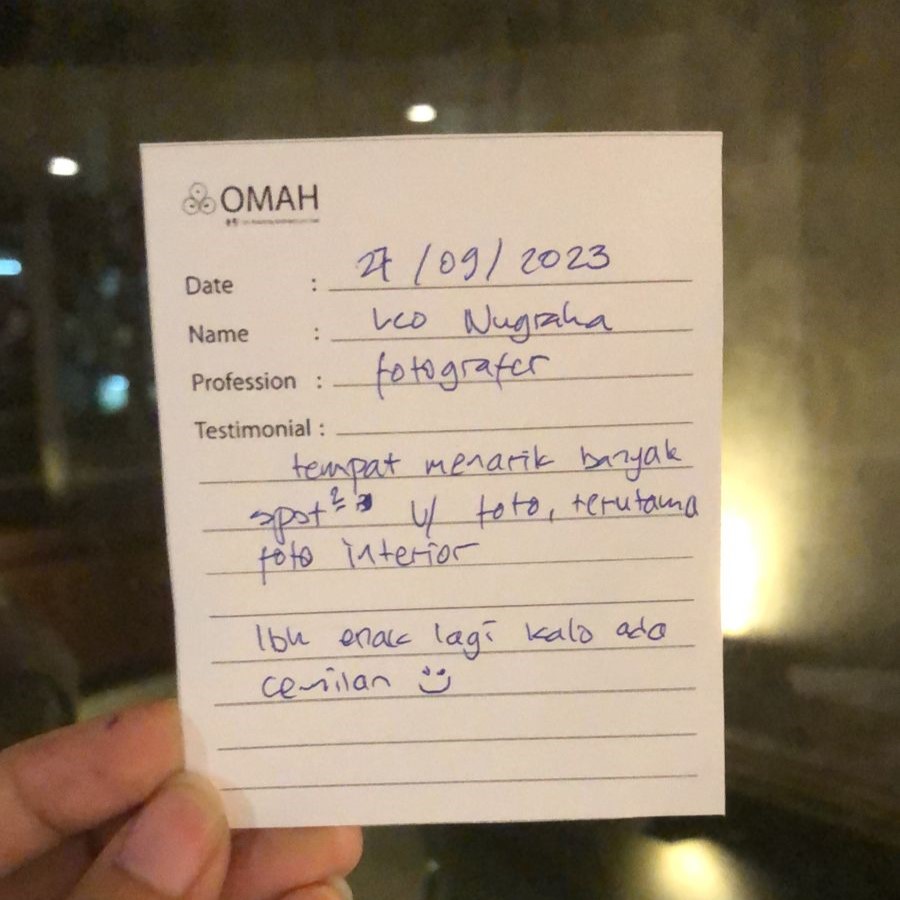 OMAH
Date : 27/09/2023
Name : Leo Nugraha
Profession : fotografer
Testimonial :
tempat menarik banyak
spot² u/ foto, terutama
foto interior
lbh enak lagi kalo ada
cemilan